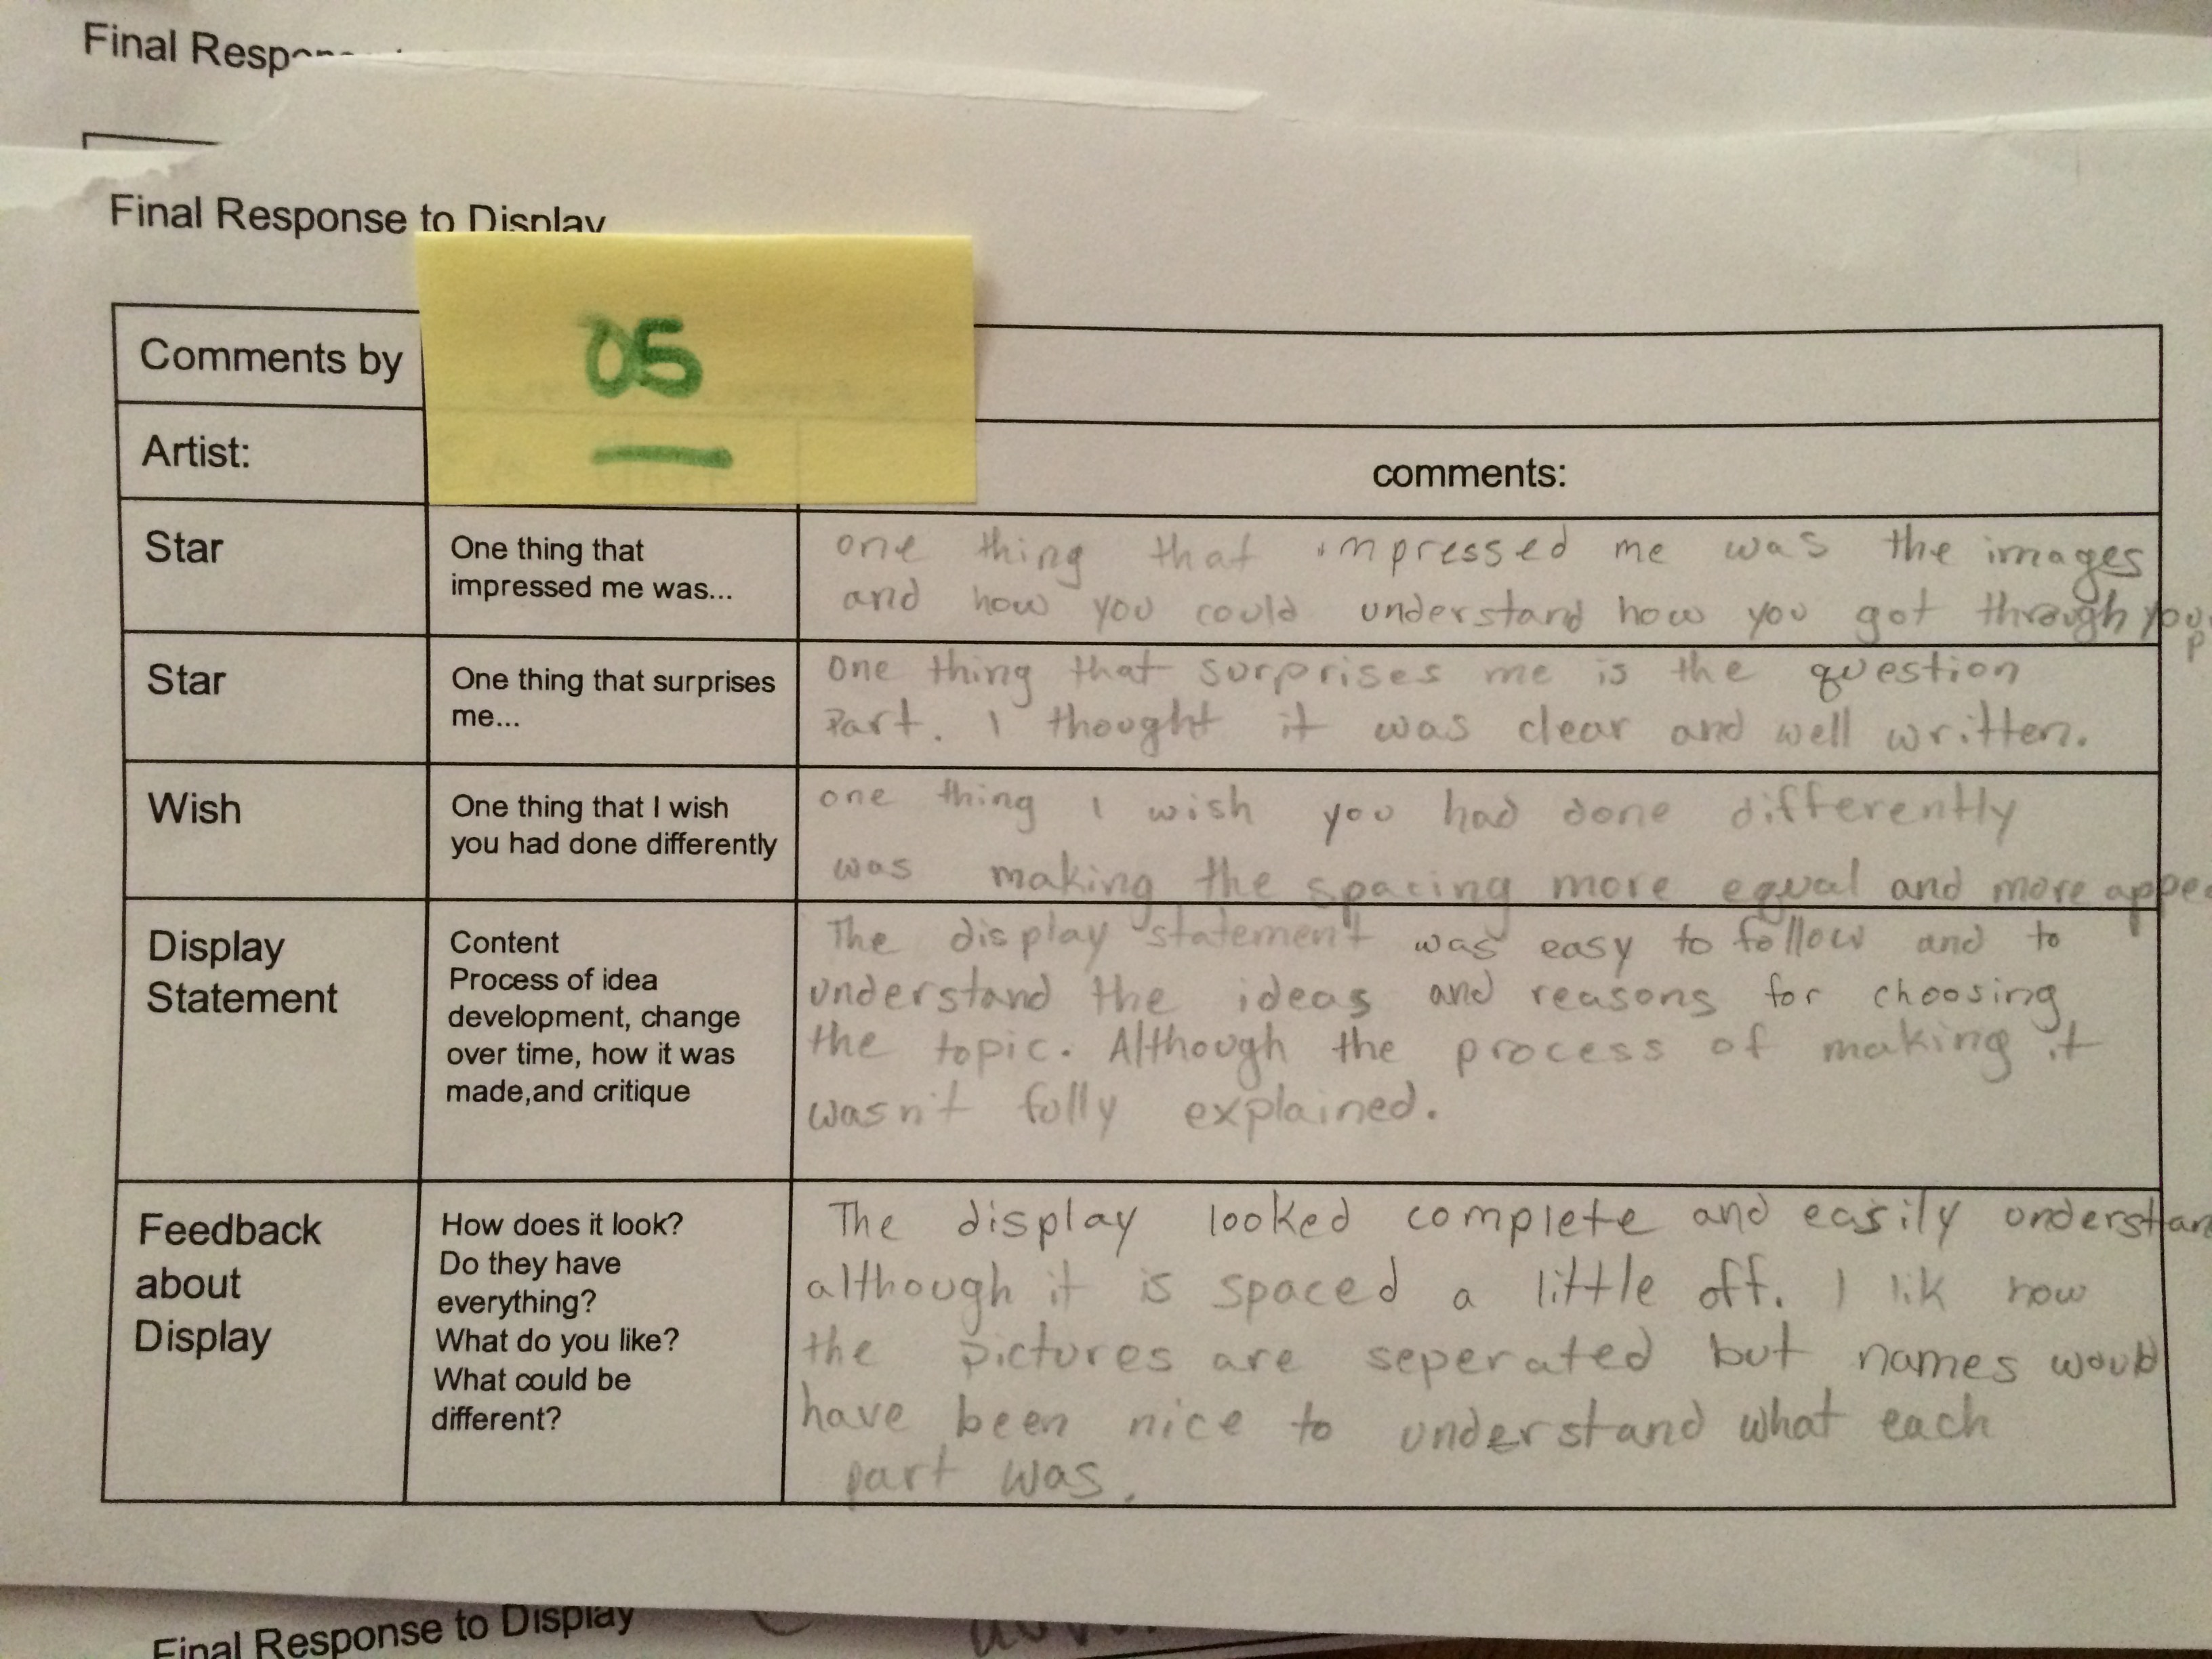 Final
Final Response to Display
Comments by
05
Artist:
comments:
Star
One thing that
impressed me was...
one thing that impressed me was the images
and how you could understand how you got through
Star
One thing that surprises
me...
one thing that surprises me is the question
Part. I thought it was clear and well written.
Wish
One thing that I wish
you had done differently
one thing I wish you had done differently
was making the spacing more equal and more
Display
Statement
Content
Process of idea
development, change
over time, how it was
made,and critique
The display statement was easy to follow and to
understand the ideas and reasons for choosing
the topic. Although the process of making it
wasn't fully explained.
Feedback
about
Display
How does it look?
Do they have
everything?
What do you like?
What could be
different?
The display looked complete and easily
although it is spaced a little off. I lik how
the pictures are seperated but names would
have been nice to understand what each
part was.
Final Response to Display